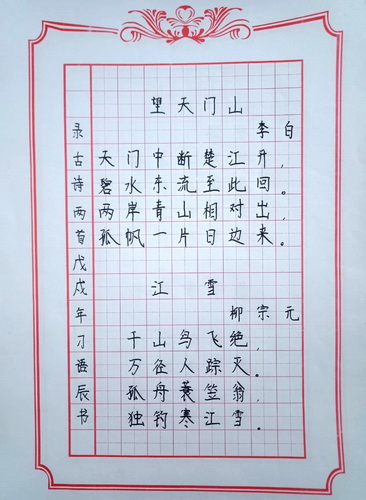 望天门山
李白
天门中断楚江开，
碧水东流至此回。
两岸青山相对出，
孤帆一片日边来。
江雪
柳宗元
千山鸟飞绝，
万径人踪灭。
孤舟蓑笠翁，
独钓寒江雪。
录古诗两首戊戌年刁语辰书